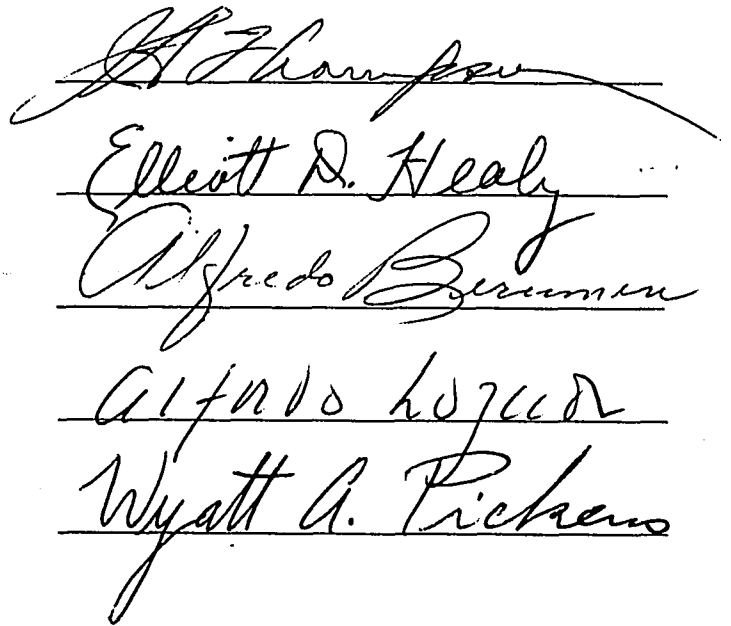 Thompson
Elliott D. Healy
Alfredo Berumen
Alfredo
Wyatt A. Pickens